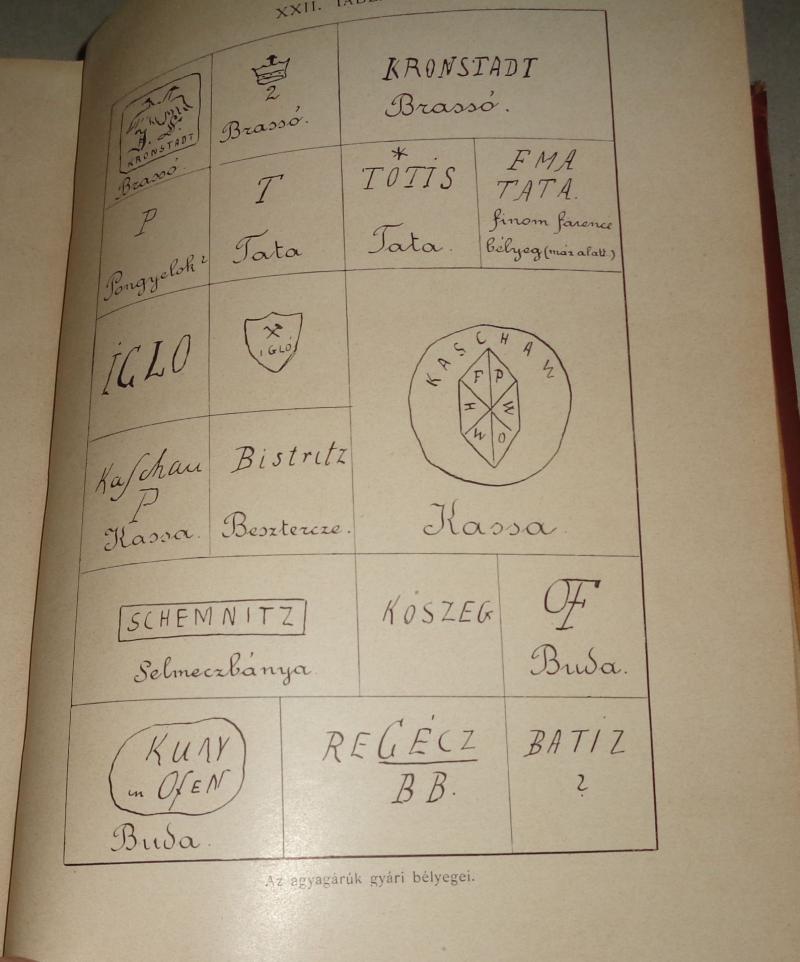 XXII.
KRONSTADT
Brassó.
2
Brassó.
KRONSTADT
Brassó.
P
Pongyelok?
T
Tata
*
TOTIS
Tata.
FMA
TATA.
finom farence
bélyeg (máz alatt.)
IGLO
IGLÓ
KASCHAW
F P
H W
W O
Kassa.
Kaschau
P
Kassa.
Bistritz
Besztercze.
SCHEMNITZ
Selmeczbánya
KÖSZEG
OF
Buda.
KUNY
in OFEN
Buda.
REGÉCZ
BB.
BATIZ
?
Az agyagárúk gyári bélyegei.